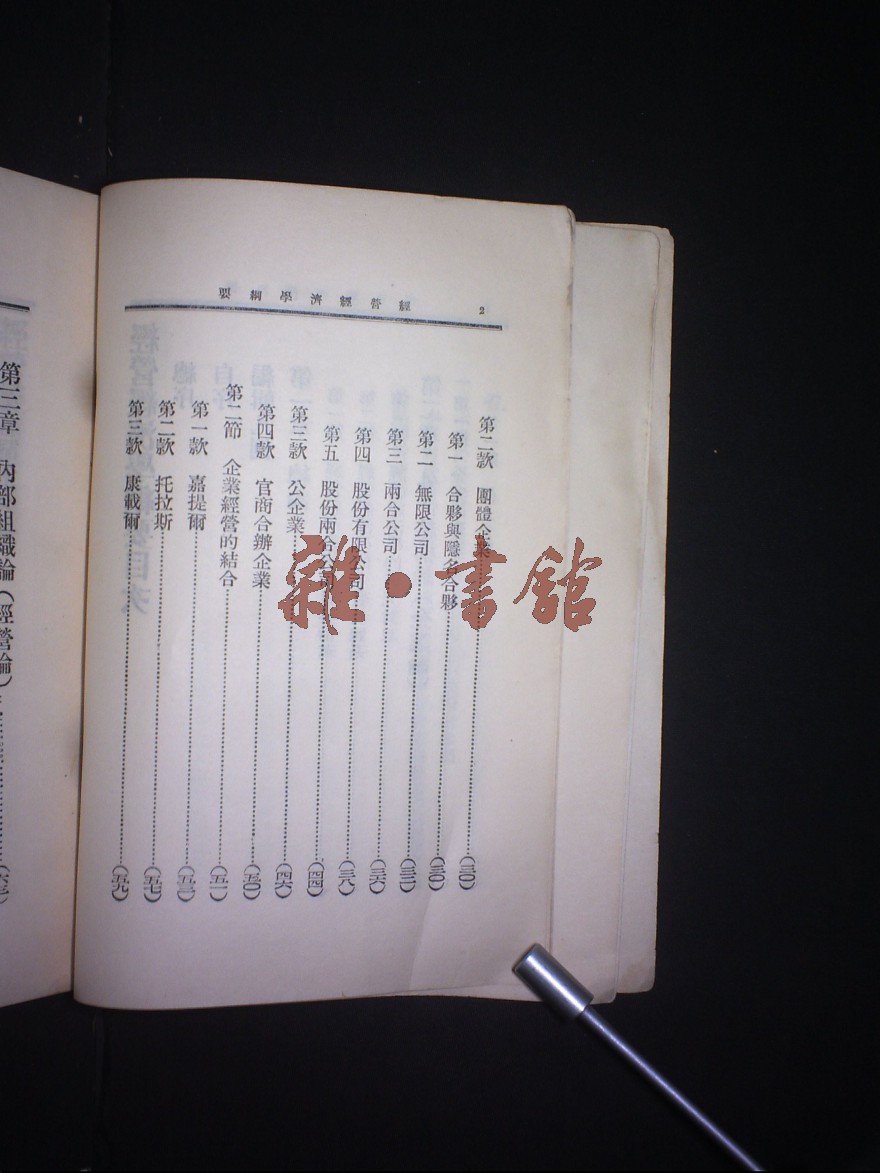 經營經濟學綱要 2
第二款 團體企業……(三〇)
第一 合夥與隱名合夥……(三〇)
第二 無限公司……(三二)
第三 兩合公司……(三六)
第四 股份有限公司……(三八)
第五 股份兩合公司……(四四)
第三款 公企業……(四六)
第四款 官商合辦企業……(五〇)
第二節 企業經營的結合……(五一)
第一款 嘉提爾……(五三)
第二款 托拉斯……(五七)
第三款 康載爾……(五九)
第三章 內部組織論(經營論)……
雜·書館